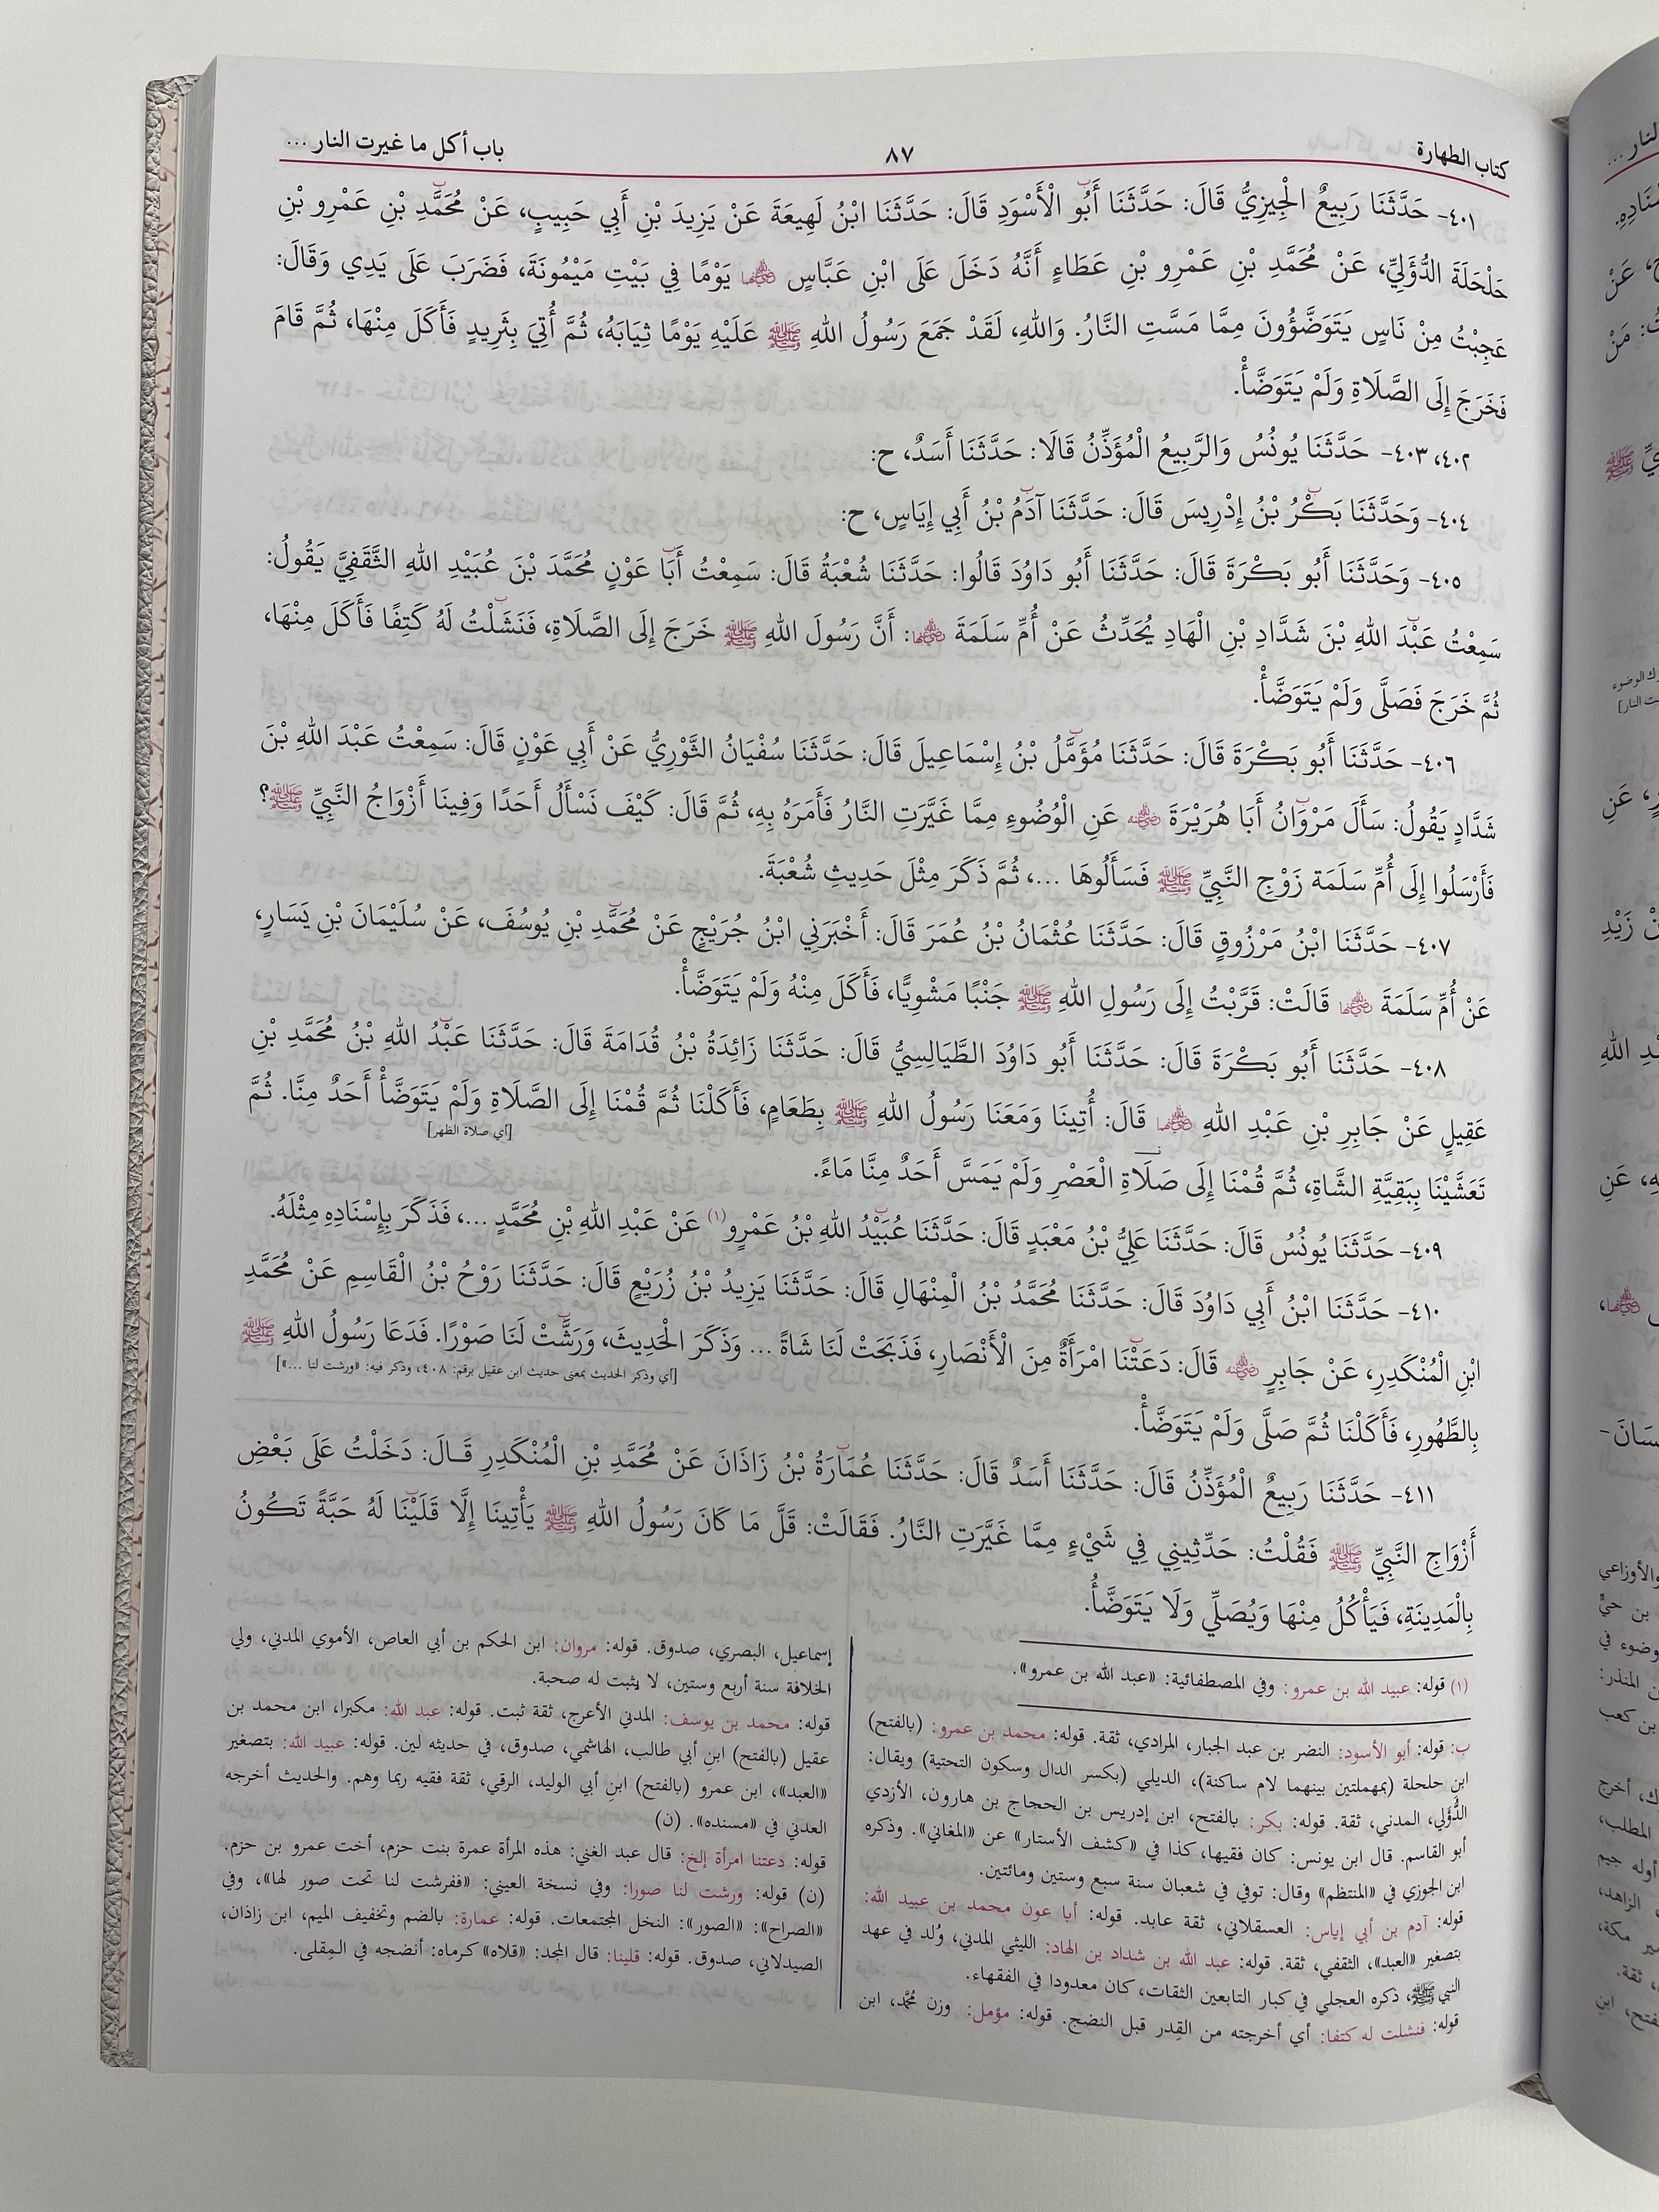 كتاب الطهارة
٨٧
باب أكل ما غيرت النار ...
٤٠١- حَدَّثَنَا رَبِيعٌ الْجِيزِيُّ قَالَ: حَدَّثَنَا أَبُو الْأَسْوَدِ قَالَ: حَدَّثَنَا ابْنُ لَهِيعَةَ عَنْ يَزِيدَ بْنِ أَبِي حَبِيبٍ، عَنْ مُحَمَّدِ بْنِ عَمْرِو بْنِ
حَلْحَلَةَ الدُّؤَلِيِّ، عَنْ مُحَمَّدِ بْنِ عَمْرِو بْنِ عَطَاءٍ أَنَّهُ دَخَلَ عَلَى ابْنِ عَبَّاسٍ ﵄ يَوْمًا فِي بَيْتِ مَيْمُونَةَ، فَضَرَبَ عَلَى يَدِي وَقَالَ:
عَجِبْتُ مِنْ نَاسٍ يَتَوَضَّؤُونَ مِمَّا مَسَّتِ النَّارُ. وَاللهِ، لَقَدْ جَمَعَ رَسُولُ اللهِ ﷺ عَلَيْهِ يَوْمًا ثِيَابَهُ، ثُمَّ أُتِيَ بِثَرِيدٍ فَأَكَلَ مِنْهَا، ثُمَّ قَامَ
فَخَرَجَ إِلَى الصَّلَاةِ وَلَمْ يَتَوَضَّأْ.
٤٠٢، ٤٠٣- حَدَّثَنَا يُونُسُ وَالرَّبِيعُ الْمُؤَذِّنُ قَالَا: حَدَّثَنَا أَسَدٌ، ح:
٤٠٤- وَحَدَّثَنَا بَكْرُ بْنُ إِدْرِيسَ قَالَ: حَدَّثَنَا آدَمُ بْنُ أَبِي إِيَاسٍ، ح:
٤٠٥- وَحَدَّثَنَا أَبُو بَكْرَةَ قَالَ: حَدَّثَنَا أَبُو دَاوُدَ قَالُوا: حَدَّثَنَا شُعْبَةُ قَالَ: سَمِعْتُ أَبَا عَوْنٍ مُحَمَّدَ بْنَ عُبَيْدِ اللهِ الثَّقَفِيَّ يَقُولُ:
سَمِعْتُ عَبْدَ اللهِ بْنَ شَدَّادِ بْنِ الْهَادِ يُحَدِّثُ عَنْ أُمِّ سَلَمَةَ ﵂: أَنَّ رَسُولَ اللهِ ﷺ خَرَجَ إِلَى الصَّلَاةِ، فَنَشَلْتُ لَهُ كَتِفًا فَأَكَلَ مِنْهَا،
ثُمَّ خَرَجَ فَصَلَّى وَلَمْ يَتَوَضَّأْ.
٤٠٦- حَدَّثَنَا أَبُو بَكْرَةَ قَالَ: حَدَّثَنَا مُؤَمَّلُ بْنُ إِسْمَاعِيلَ قَالَ: حَدَّثَنَا سُفْيَانُ الثَّوْرِيُّ عَنْ أَبِي عَوْنٍ قَالَ: سَمِعْتُ عَبْدَ اللهِ بْنَ
شَدَّادٍ يَقُولُ: سَأَلَ مَرْوَانُ أَبَا هُرَيْرَةَ ﵁ عَنِ الْوُضُوءِ مِمَّا غَيَّرَتِ النَّارُ فَأَمَرَهُ بِهِ، ثُمَّ قَالَ: كَيْفَ نَسْأَلُ أَحَدًا وَفِينَا أَزْوَاجُ النَّبِيِّ ﷺ؟
فَأَرْسَلُوا إِلَى أُمِّ سَلَمَة زَوْجِ النَّبِيِّ ﷺ فَسَأَلُوهَا ...، ثُمَّ ذَكَرَ مِثْلَ حَدِيثِ شُعْبَةَ.
٤٠٧- حَدَّثَنَا ابْنُ مَرْزُوقٍ قَالَ: حَدَّثَنَا عُثْمَانُ بْنُ عُمَرَ قَالَ: أَخْبَرَنِي ابْنُ جُرَيْجٍ عَنْ مُحَمَّدِ بْنِ يُوسُفَ، عَنْ سُلَيْمَانَ بْنِ يَسَارٍ،
عَنْ أُمِّ سَلَمَةَ ﵂ قَالَتْ: قَرَّبْتُ إِلَى رَسُولِ اللهِ ﷺ جَنْبًا مَشْوِيًّا، فَأَكَلَ مِنْهُ وَلَمْ يَتَوَضَّأْ.
٤٠٨- حَدَّثَنَا أَبُو بَكْرَةَ قَالَ: حَدَّثَنَا أَبُو دَاوُدَ الطَّيَالِسِيُّ قَالَ: حَدَّثَنَا زَائِدَةُ بْنُ قُدَامَةَ قَالَ: حَدَّثَنَا عَبْدُ اللهِ بْنُ مُحَمَّدِ بْنِ
عَقِيلٍ عَنْ جَابِرِ بْنِ عَبْدِ اللهِ ﵄ قَالَ: أُتِينَا وَمَعَنَا رَسُولُ اللهِ ﷺ بِطَعَامٍ، فَأَكَلْنَا ثُمَّ قُمْنَا إِلَى الصَّلَاةِ وَلَمْ يَتَوَضَّأْ أَحَدٌ مِنَّا. ثُمَّ
[أي صلاة الظهر]
تَعَشَّيْنَا بِبَقِيَّةِ الشَّاةِ، ثُمَّ قُمْنَا إِلَى صَلَاةِ الْعَصْرِ وَلَمْ يَمَسَّ أَحَدٌ مِنَّا مَاءً.
٤٠٩- حَدَّثَنَا يُونُسُ قَالَ: حَدَّثَنَا عَلِيُّ بْنُ مَعْبَدٍ قَالَ: حَدَّثَنَا عُبَيْدُ اللهِ بْنُ عَمْرٍو(١) عَنْ عَبْدِ اللهِ بْنِ مُحَمَّدٍ ...، فَذَكَرَ بِإِسْنَادِهِ مِثْلَهُ.
٤١٠- حَدَّثَنَا ابْنُ أَبِي دَاوُدَ قَالَ: حَدَّثَنَا مُحَمَّدُ بْنُ الْمِنْهَالِ قَالَ: حَدَّثَنَا يَزِيدُ بْنُ زُرَيْعٍ قَالَ: حَدَّثَنَا رَوْحُ بْنُ الْقَاسِمِ عَنْ مُحَمَّدِ
ابْنِ الْمُنْكَدِرِ، عَنْ جَابِرٍ ﵁ قَالَ: دَعَتْنَا امْرَأَةٌ مِنَ الْأَنْصَارِ، فَذَبَحَتْ لَنَا شَاةً ... وَذَكَرَ الْحَدِيثَ، وَرَشَّتْ لَنَا صَوْرًا. فَدَعَا رَسُولُ اللهِ ﷺ
[أي وذكر الحديث بمعنى حديث ابن عقيل برقم: ٤٠٨، وذكر فيه: «ورشت لنا ...»]
بِالطَّهُورِ، فَأَكَلْنَا ثُمَّ صَلَّى وَلَمْ يَتَوَضَّأْ.
٤١١- حَدَّثَنَا رَبِيعٌ الْمُؤَذِّنُ قَالَ: حَدَّثَنَا أَسَدٌ قَالَ: حَدَّثَنَا عُمَارَةُ بْنُ زَاذَانَ عَنْ مُحَمَّدِ بْنِ الْمُنْكَدِرِ قَالَ: دَخَلْتُ عَلَى بَعْضِ
أَزْوَاجِ النَّبِيِّ ﷺ فَقُلْتُ: حَدِّثِينِي فِي شَيْءٍ مِمَّا غَيَّرَتِ النَّارُ. فَقَالَتْ: قَلَّ مَا كَانَ رَسُولُ اللهِ ﷺ يَأْتِينَا إِلَّا قَلَيْنَا لَهُ حَبَّةً تَكُونُ
بِالْمَدِينَةِ، فَيَأْكُلُ مِنْهَا وَيُصَلِّي وَلَا يَتَوَضَّأُ.
(١) قوله: عبيد الله بن عمرو: وفي المصطفائية: «عبد الله بن عمرو».
ب: قوله: أبو الأسود: النضر بن عبد الجبار، المرادي، ثقة. قوله: محمد بن عمرو: (بالفتح)
ابن حلحلة (بمهملتين بينهما لام ساكنة)، الديلي (بكسر الدال وسكون التحتية) ويقال:
الدُّؤَلي، المدني، ثقة. قوله: بكر: بالفتح، ابن إدريس بن الحجاج بن هارون، الأزدي
أبو القاسم. قال ابن يونس: كان فقيها، كذا في «كشف الأستار» عن «المغاني». وذكره
ابن الجوزي في «المنتظم» وقال: توفي في شعبان سنة سبع وستين ومائتين.
قوله: آدم بن أبي إياس: العسقلاني، ثقة عابد. قوله: أبا عون محمد بن عبيد الله:
بتصغير «العبد»، الثقفي، ثقة. قوله: عبد الله بن شداد بن الهاد: الليثي المدني، وُلد في عهد
النبي ﷺ، ذكره العجلي في كبار التابعين الثقات، كان معدودا في الفقهاء.
قوله: فنشلت له كتفا: أي أخرجته من القِدر قبل النضج. قوله: مؤمل: وزن محمَّد، ابن
إسماعيل، البصري، صدوق. قوله: مروان: ابن الحكم بن أبي العاص، الأموي المدني، ولي
الخلافة سنة أربع وستين، لا يثبت له صحبة.
قوله: محمد بن يوسف: المدني الأعرج، ثقة ثبت. قوله: عبد الله: مكبرا، ابن محمد بن
عقيل (بالفتح) ابنِ أبي طالب، الهاشمي، صدوق، في حديثه لين. قوله: عبيد الله: بتصغير
«العبد»، ابن عمرو (بالفتح) ابنِ أبي الوليد، الرقي، ثقة فقيه ربما وهم. والحديث أخرجه
العدني في «مسنده». (ن)
قوله: دعتنا امرأة إلخ: قال عبد الغني: هذه المرأة عمرة بنت حزم، أخت عمرو بن حزم.
(ن) قوله: ورشت لنا صورا: وفي نسخة العيني: «ففرشت لنا تحت صور لها»، وفي
«الصراح»: «الصور»: النخل المجتمعات. قوله: عمارة: بالضم وتخفيف الميم، ابن زاذان،
الصيدلاني، صدوق. قوله: قلينا: قال المجد: «قلاه» كرماه: أنضجه في المِقلى.